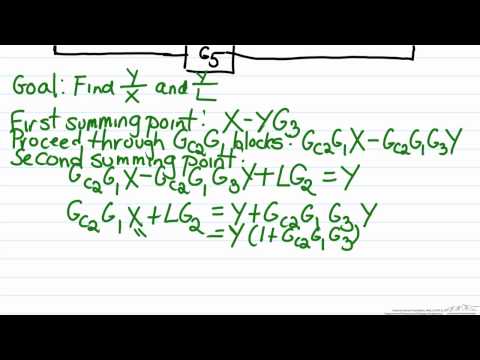 G5
Goal: Find Y/X and Y/L
First summing point: X-YG3
Proceed through Gc2G1 blocks: Gc2G1X-Gc2G1G3Y
Second summing point:
Gc2G1X-Gc2G1G3Y+LG2=Y
Gc2G1X+LG2=Y+Gc2G1G3Y
=Y(1+Gc2G1G3)